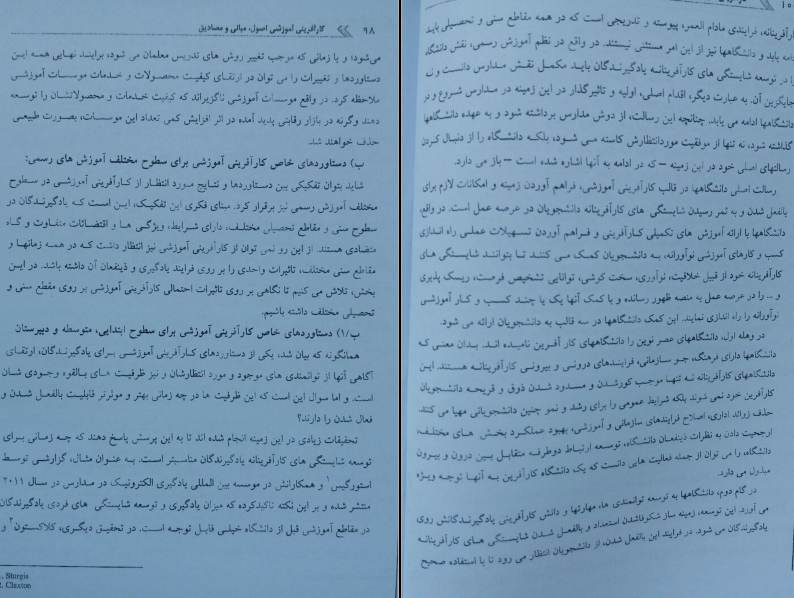 ۹۸ کارآفرینی آموزشی اصول، مبانی و مصادیق
می‌شود؛ و یا زمانی که موجب تغییر روش های تدریس معلمان می شود، برایند نهایی همه این
دستاوردها و تغییرات را می توان در ارتقای کیفیت محصولات و خدمات موسسات آموزشی
ملاحظه کرد. در واقع موسسات آموزشی ناگزیراند که کیفیت خدمات و محصولاتشان را توسعه
دهند وگرنه در بازار رقابتی پدید آمده در اثر افزایش کمی تعداد این موسسات، بصورت طبیعی
حذف خواهند شد.
ب) دستاوردهای خاص کارآفرینی آموزشی برای سطوح مختلف آموزش های رسمی:
شاید بتوان تفکیکی بین دستاوردها و نتایج مورد انتظار از کارآفرینی آموزشی در سطوح
مختلف آموزش رسمی نیز برقرار کرد. مبنای فکری این تفکیک، این است که یادگیرندگان در
سطوح سنی و مقاطع تحصیلی مختلف، دارای شرایط، ویژگی ها و اقتضائات متفاوت و گاه
متضادی هستند. از این رو نمی توان از کارآفرینی آموزشی نیز انتظار داشت که در همه زمانها و
مقاطع سنی مختلف، تاثیرات واحدی را بر روی فرایند یادگیری و ذینفعان آن داشته باشد. در این
بخش، تلاش می کنیم تا نگاهی بر روی تاثیرات احتمالی کارآفرینی آموزشی بر روی مقطع سنی و
تحصیلی مختلف داشته باشیم.
ب/۱) دستاوردهای خاص کارآفرینی آموزشی برای سطوح ابتدایی، متوسطه و دبیرستان
همانگونه که بیان شد، یکی از دستاوردهای کارآفرینی آموزشی برای یادگیرندگان، ارتقای
آگاهی آنها از توانمندی های موجود و مورد انتظارشان و نیز ظرفیت های بالقوه وجودی شان
است. و اما سوال این است که این ظرفیت ها در چه زمانی بهتر و موثرتر قابلیت بالفعل شدن و
فعال شدن را دارند؟
تحقیقات زیادی در این زمینه انجام شده اند تا به این پرسش پاسخ دهند که چه زمانی برای
توسعه شایستگی های کارآفرینانه یادگیرندگان مناسبتر است. به عنوان مثال، گزارشی توسط
استورگیس۱ و همکارانش در موسسه بین المللی یادگیری الکترونیک در مدارس در سال ۲۰۱۱
منتشر شده و بر این نکته تاکیدکرده که میزان یادگیری و توسعه شایستگی های فردی یادگیرندگان
در مقاطع آموزشی قبل از دانشگاه خیلی قابل توجه است. در تحقیق دیگری، کلاکستون۲ و
1. Sturgis
2. Claxton
کارآفرینانه، فرایندی مادام العمر، پیوسته و تدریجی است که در همه مقاطع سنی و تحصیلی باید
ادامه یابد و دانشگاهها نیز از این امر مستثنی نیستند. در واقع در نظم آموزش رسمی، نقش دانشگاه
را در توسعه شایستگی های کارآفرینانه یادگیرندگان باید مکمل نقش مدارس دانست و نه
جایگزین آن. به عبارت دیگر، اقدام اصلی، اولیه و تاثیرگذار در این زمینه در مدارس شروع و در
دانشگاهها ادامه می یابد. چنانچه این رسالت، از دوش مدارس برداشته شود و به عهده دانشگاهها
گذاشته شود، نه تنها از موفقیت موردانتظارش کاسته می شود، بلکه دانشگاه را از دنبال کردن
رسالتهای اصلی خود در این زمینه – که در ادامه به آنها اشاره شده است – باز می دارد.
رسالت اصلی دانشگاهها در قالب کارآفرینی آموزشی، فراهم آوردن زمینه و امکانات لازم برای
بالفعل شدن و به ثمر رسیدن شایستگی های کارآفرینانه دانشجویان در عرصه عمل است. در واقع،
دانشگاهها با ارائه آموزش های تکمیلی کارآفرینی و فراهم آوردن تسهیلات عملی راه اندازی
کسب و کارهای آموزشی نوآورانه، به دانشجویان کمک می کنند تا بتوانند شایستگی های
کارآفرینانه خود از قبیل خلاقیت، نوآوری، سخت کوشی، توانایی تشخیص فرصت، ریسک پذیری
و ... را در عرصه عمل به منصه ظهور رسانده و با کمک آنها یک یا چند کسب و کار آموزشی
نوآورانه را راه اندازی نمایند. این کمک دانشگاهها در سه قالب به دانشجویان ارائه می شود.
در وهله اول، دانشگاههای عصر نوین را دانشگاههای کار آفرین نامیده اند. بدان معنی که
دانشگاهها دارای فرهنگ، جو سازمانی، فرایندهای درونی و بیرونی کارآفرینانه هستند. این
دانشگاههای کارآفرینانه نه تنها موجب کورشدن و مسدود شدن ذوق و قریحه دانشجویان
کارآفرین خود نمی شوند بلکه شرایط عمومی را برای رشد و نمو چنین دانشجویانی مهیا می کنند.
حذف زوائد اداری، اصلاح فرایندهای سازمانی و آموزشی، بهبود عملکرد بخش های مختلف،
ارجحیت دادن به نظرات ذینفعان دانشگاه، توسعه ارتباط دوطرفه متقابل بین درون و بیرون
دانشگاه، را می توان از جمله فعالیت هایی دانست که یک دانشگاه کارآفرین به آنها توجه ویژه
مبذول می دارد.
در گام دوم، دانشگاهها به توسعه توانمندی ها، مهارتها و دانش کارآفرینی یادگیرندگانش روی
می آورد. این توسعه، زمینه ساز شکوفاشدن استعداد و بالفعل شدن شایستگی های کارآفرینانه
یادگیرندگان می شود. در فرایند این بالفعل شدن، از دانشجویان انتظار می رود تا با استفاده صحیح